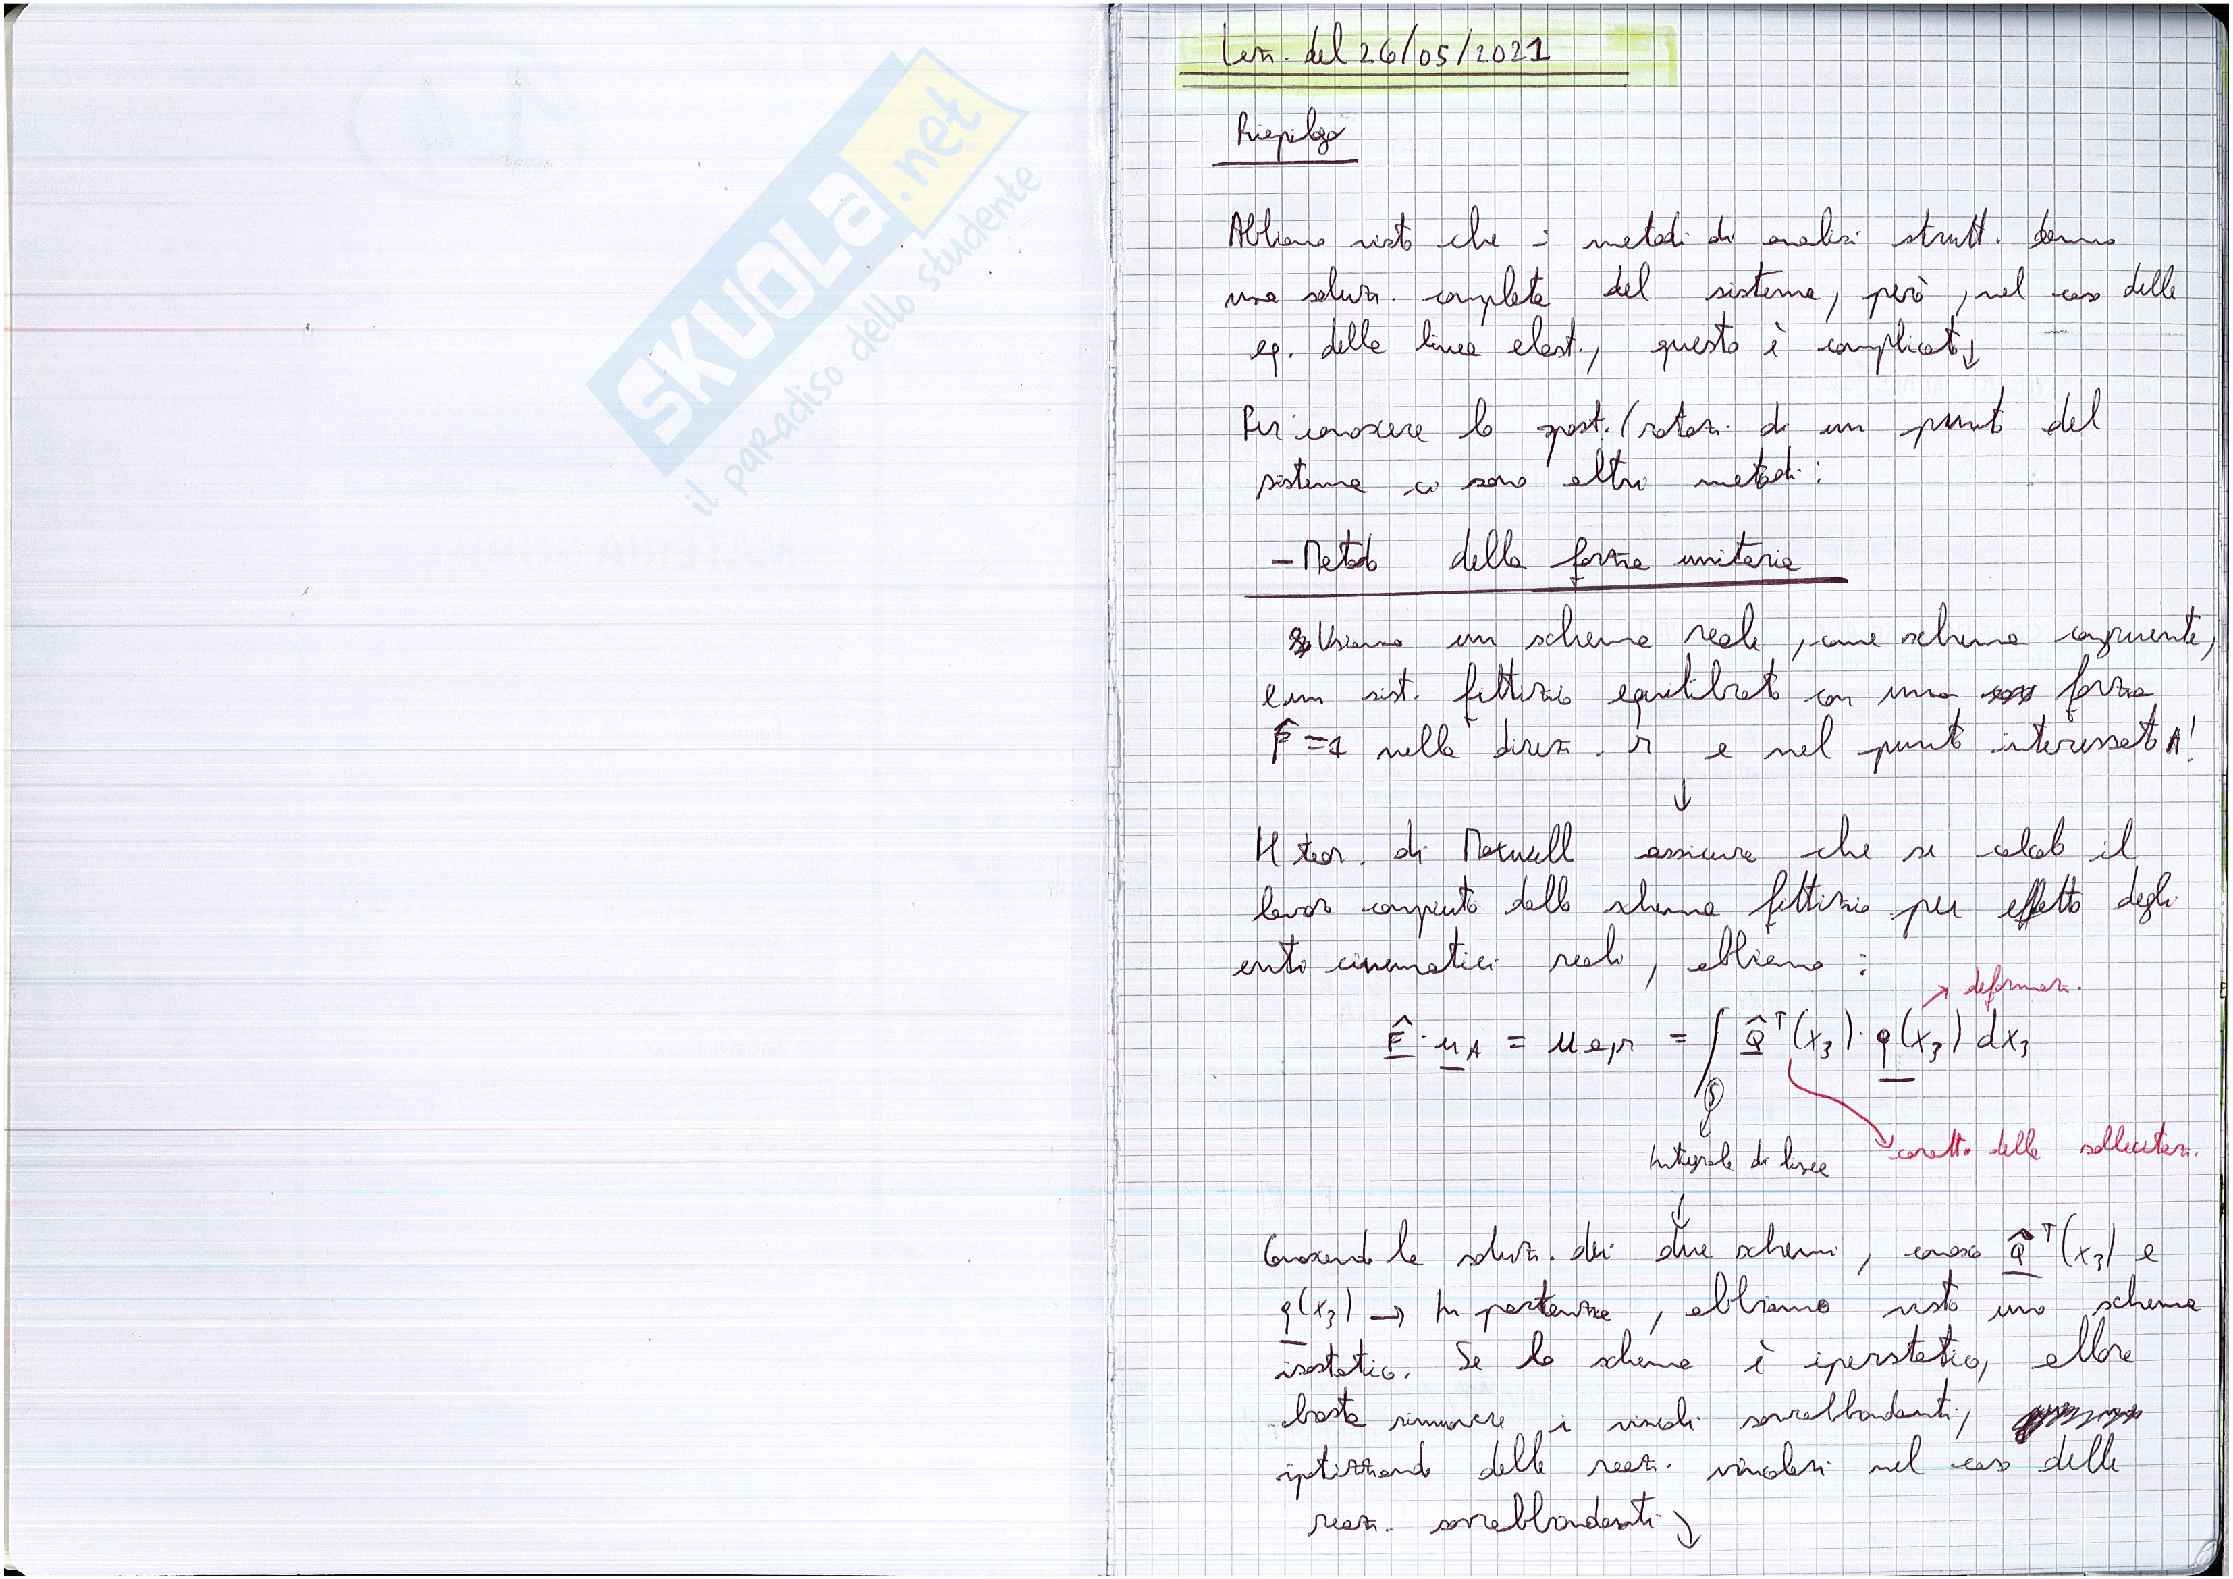 SKUOLA.net
il paradiso dello studente
Lez. del 26/05/2021
Riepilogo
Abbiamo visto che i metodi di analisi strutt. danno
una soluz. completa del sistema, però, nel caso delle
eq. della linea elast., questo è complicato ↓
Per conoscere lo spost./rotaz. di un punto del
sistema ci sono altri metodi:
- Metodo della forza unitaria
Usiamo un schema reale, come schema congruente,
e un sist. fittizio equilibrato con una forza
F̂ = 1 nella direz. r e nel punto interessato A!
↓
Il teor. di Maxwell assicura che se calcolo il
lavoro compiuto dallo schema fittizio per effetto degli
enti cinematici reali, abbiamo:
deformaz.
F̂ · u_A = u_{a,r} = ∫_S Q̂ᵀ(x₃) · q(x₃) dx₃
Integrale di linea
caratt. della sollecitaz.
↓
Conoscendo le soluz. dei due schemi, conosco Q̂ᵀ(x₃) e
q(x₃) → In partenza, abbiamo visto uno schema
isostatico. Se lo schema è iperstatico, allora
basta rimuovere i vincoli sovrabbondanti,
ipotizzando delle reaz. vincolari nel caso delle
reaz. sovrabbondanti ↓